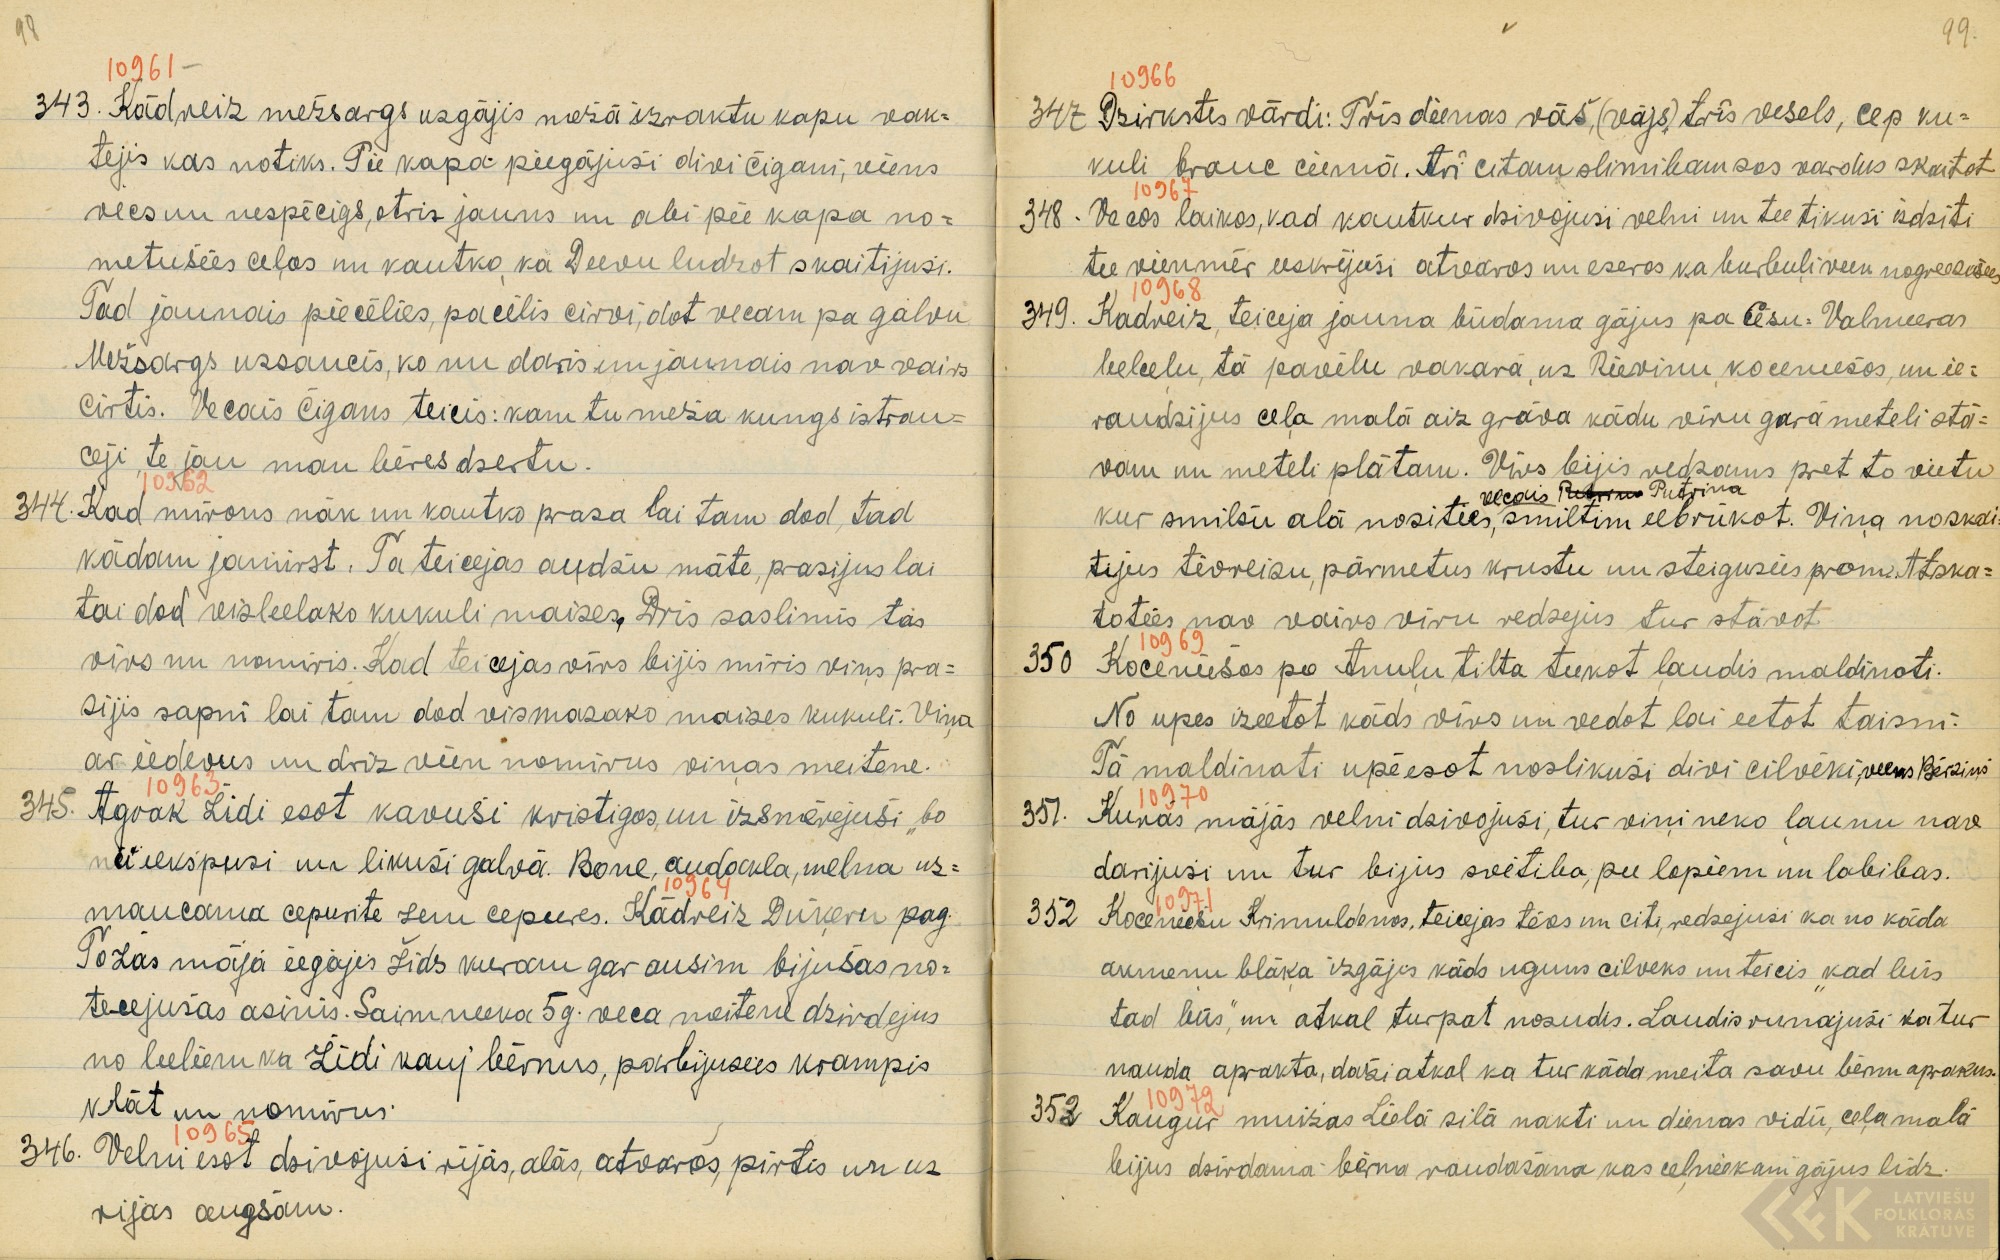 98
10961 –
343. Kādreiz mežsargs uzgājis mežā izraktu kapu vak=
tejis kas notiks. Pie kapa piegājuši divi čigani, viens
vecs un nespēcigs, otris jauns un abi pie kapa no=
metušēes ceļos un kautko, kā Deevu ludzot skaitijuši.
Tad jaunais piecēlies, pacēlis cirvi, dot vecam pa galvu
Mežsargs uzsaucis, ko nu daris un jaunais nav vairs
cirtis. Vecais čigans teicis: kam tu meža kungs iztrau=
ceji, te jau man bēres dzertu.
10962
344. Kad mirons nāk un kautko prasa lai tam dod, tad
kādam jamirst. Ta teicejas audžu māte, prasijus lai
tai dod visleelako kukuli maizes. Driz saslimis tās
virs un nomiris. Kad teicejas virs bijis miris viņs pra=
sijis sapnī lai tam dod vismazako maizes kukuli. Viņa
ar iedevus un driz vien nomirus viņas meitene.
10963
345. Agrak Židi esot kavuši kristigos, un izsmērejuši „bo
ni" iekspusi un likuši galvā. Bone, audekla, melna uz=
maucama cepurite zem cepures.
10964
Kādreiz Dukeru pag.
Pozās mājā iegājis žids kuram gar ausim bijušas no=
tecejušas asinis. Saimneeka 5 g. veca meitene dzirdejus
no leeliem ka Židi kauj bērnus, parbijusees krampis
klāt un nomirus.
10965
346. Velni esot dzivojuši rijās, alās, atvaros, pirtis un uz
rijas augšām.
99.
10966
347 Dzirkstes vārdi: Trīs dienas vāš, (vājš) trīs vesels, cep ku=
kuli brauc ciemā. Arī citam slimibam šos vardus skaitot
10967
348. Vecos laikos, kad kautkur dzivojuši velni un tee tikuši izdziti
tee vienmēr uskrējuši atvaros un ezeros ka burbuļi veen nogreezušees
10968
349. Kadreiz, teiceja jauna būdama gājus pa Cēsu= Valmeeras
leelceļu, tā pavēlu vakarā, uz Rievinu, kocenešos, un ie=
raudzijus ceļa malā aiz grāva kādu viru garā meteli stā=
vam un meteli plātam. Virs bijis redzams pret to vietu
vecais Putrina
kur smilšu alā nositees, smiltim eebrūkot. Viņa noskai=
tijus tēvreizu, pārmetus krustu un steigusēes prom. Atska=
totēes nav vairs viru redzejus tur stāvot
10969
350 Kocenēešos pa Anuļu tilta teekot ļaudis maldinati.
No upes izeetot kāds virs un vedot lai eetot taisni.
Tā maldinati upē esot noslikuši divi cilvēki, veens Bērziņš
10970
351. Kurās mājās velni dzivojuši, tur viņi neko ļaunu nav
darijuši un tur bijus svētiba, pee lopiem un labibas.
10971
352 Koceneešu Krimuldenos, teicejas tēvs un citi, redzejuši ka no kāda
akmeņu blāķa izgājis kāds uguns cilveks un teicis „kad būs
tad būs", un atkal turpat nosudis. Laudis runajuši ka tur
nauda aprakta, daži atkal ka tur kāda meita savu bērnu aprakus.
10972
352 Kaugur muižas Lielā silā nakti un dienas vidū, ceļa malā
bijus dzirdama bērna raudašana kas ceļnēekam gājus lidz.
LATVIEŠU
FOLKLORAS
KRĀTUVE